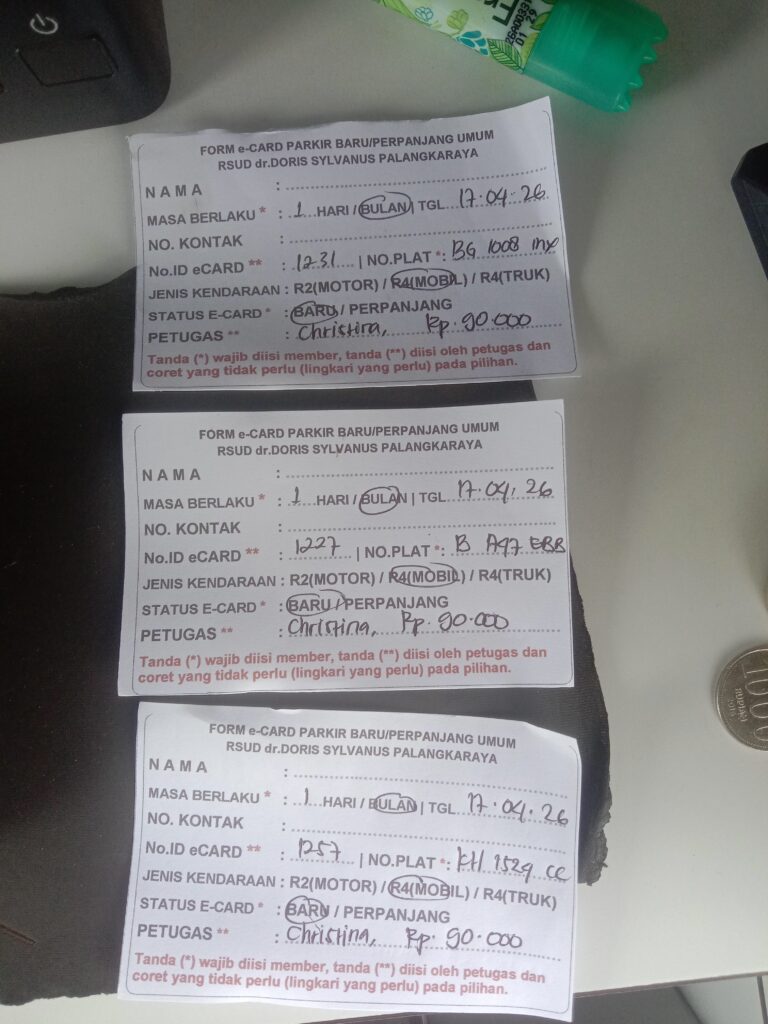 26A0033
01 29
FORM e-CARD PARKIR BARU/PERPANJANG UMUM
RSUD dr.DORIS SYLVANUS PALANGKARAYA
NAMA :
MASA BERLAKU * : 1 HARI / BULAN | TGL 17.04.26
NO. KONTAK :
No.ID eCARD ** : 1231 | NO.PLAT *: BG 1008
JENIS KENDARAAN : R2(MOTOR) / R4(MOBIL) / R4(TRUK)
STATUS E-CARD * : BARU / PERPANJANG
PETUGAS ** : Christina, Rp. 90.000
Tanda (*) wajib diisi member, tanda (**) diisi oleh petugas dan
coret yang tidak perlu (lingkari yang perlu) pada pilihan.
FORM e-CARD PARKIR BARU/PERPANJANG UMUM
RSUD dr.DORIS SYLVANUS PALANGKARAYA
NAMA :
MASA BERLAKU * : 1 HARI / BULAN | TGL 17.04.26
NO. KONTAK :
No.ID eCARD ** : 1227 | NO.PLAT *: B
JENIS KENDARAAN : R2(MOTOR) / R4(MOBIL) / R4(TRUK)
STATUS E-CARD * : BARU / PERPANJANG
PETUGAS ** : Christina, Rp. 90.000
Tanda (*) wajib diisi member, tanda (**) diisi oleh petugas dan
coret yang tidak perlu (lingkari yang perlu) pada pilihan.
FORM e-CARD PARKIR BARU/PERPANJANG UMUM
RSUD dr.DORIS SYLVANUS PALANGKARAYA
NAMA :
MASA BERLAKU * : 1 HARI / BULAN | TGL 17.04.26
NO. KONTAK :
No.ID eCARD ** : 1257 | NO.PLAT *: KH 1529 CC
JENIS KENDARAAN : R2(MOTOR) / R4(MOBIL) / R4(TRUK)
STATUS E-CARD * : BARU / PERPANJANG
PETUGAS ** : Christina, Rp. 90.000
Tanda (*) wajib diisi member, tanda (**) diisi oleh petugas dan
coret yang tidak perlu (lingkari yang perlu) pada pilihan.
1000
RUPIAH